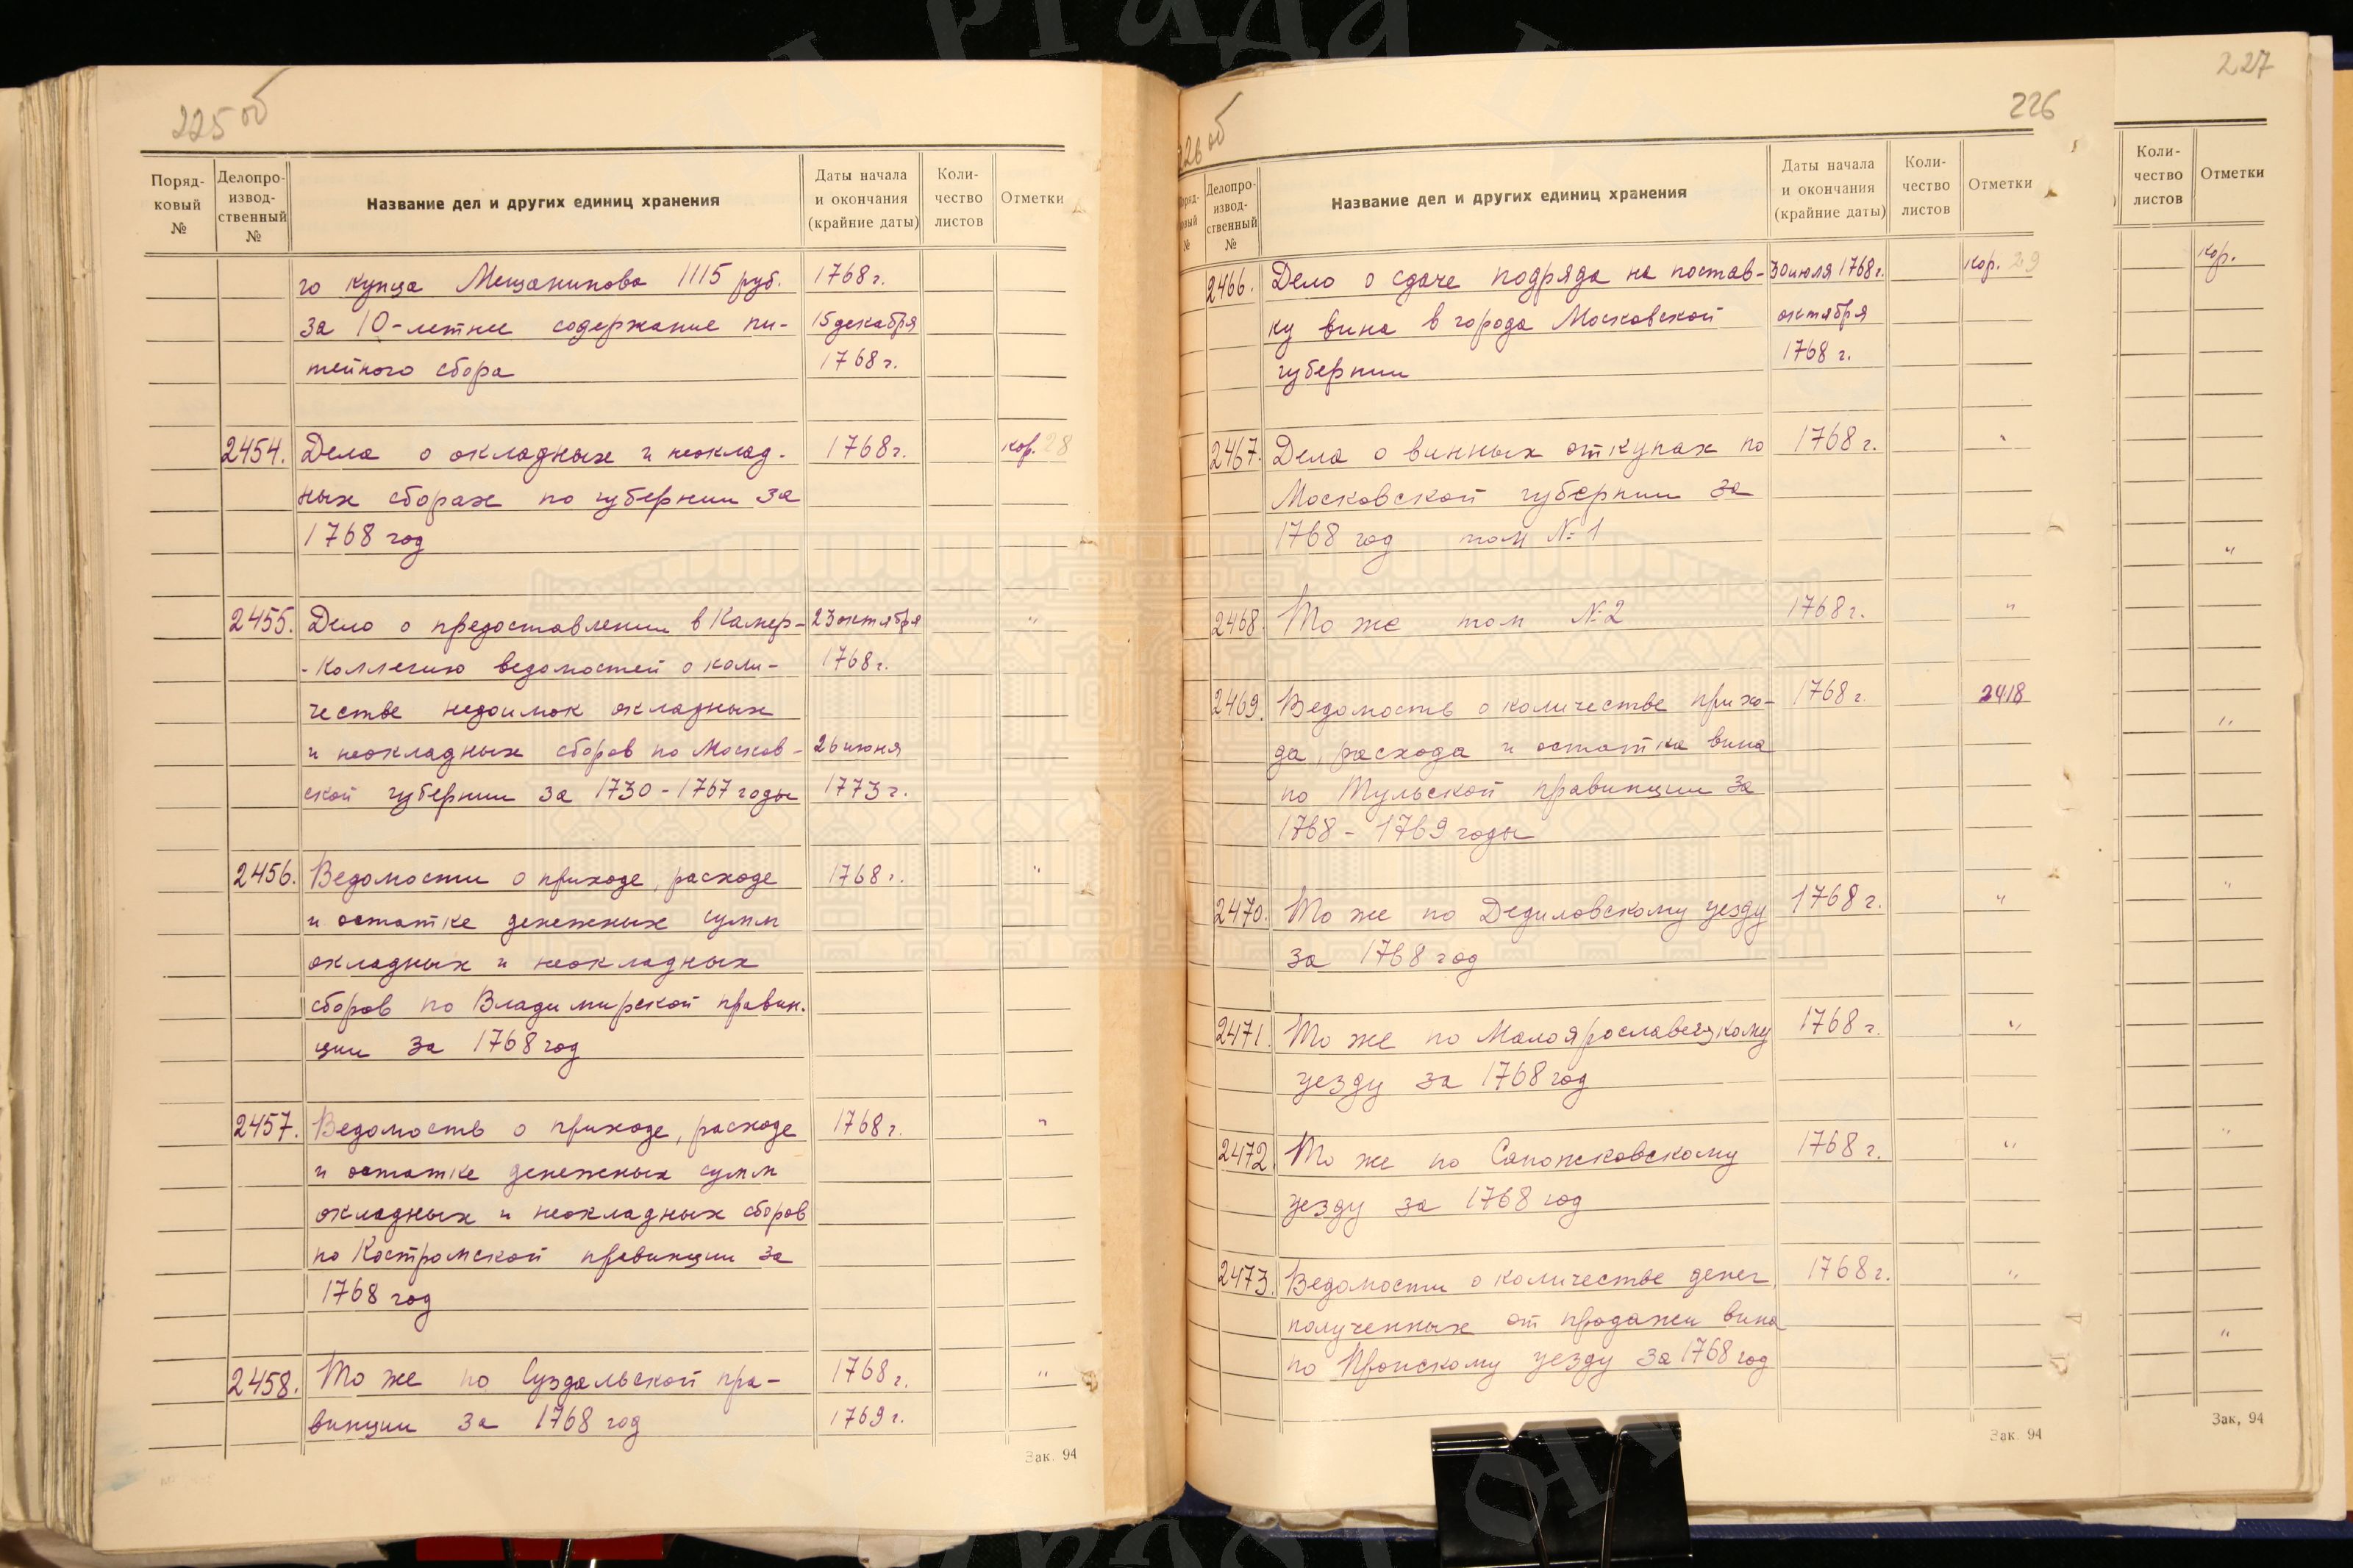 225 об
Поряд-
ковый
№
Делопро-
извод-
ственный
№
Название дел и других единиц хранения
Даты начала
и окончания
(крайние даты)
Коли-
чество
листов
Отметки
го купца Мещанинова 1115 руб. 1768 г.
за 10-летнее содержание пи- 15 декабря
тейного сбора 1768 г.
2454. Дела о окладных и неоклад- 1768 г. кор. 28
ных сборах по губернии за
1768 год
2455. Дело о предоставлении в Камер- 23 октября "
-Коллегию ведомостей о коли- 1768 г.
честве недоимок окладных
и неокладных сборов по Москов- 26 июня
ской губернии за 1730 - 1767 годы 1773 г.
2456. Ведомости о приходе, расходе 1768 г. "
и остатке денежных сумм
окладных и неокладных
сборов по Владимирской правин-
ции за 1768 год
2457. Ведомость о приходе, расходе 1768 г. "
и остатке денежных сумм
окладных и неокладных сборов
по Костромской правинции за
1768 год
2458. То же по Суздальской пра- 1768 г. "
винции за 1768 год 1769 г.
Зак. 94
26 об
226
Делопро-
извод-
ственный
№
Название дел и других единиц хранения
Даты начала
и окончания
(крайние даты)
Коли-
чество
листов
Отметки
2466. Дело о сдаче подряда на постав- 30 июля 1768 г. кор. 29
ку вина в города Московской октября
губернии 1768 г.
2467. Дела о винных откупах по 1768 г. "
Московской губернии за
1768 год том № 1
2468. То же том № 2 1768 г. "
2469. Ведомость о количестве прихо- 1768 г. 2418
да, расхода и остатка вина
по Тульской правинции за
1768 - 1769 годы
2470. То же по Дедиловскому уезду 1768 г. "
за 1768 год
2471. То же по Малоярославецкому 1768 г. "
уезду за 1768 год
2472. То же по Сапожковскому 1768 г. "
уезду за 1768 год
2473. Ведомости о количестве денег, 1768 г. "
полученных от продажи вина
по Пронскому уезду за 1768 год
Зак. 94
227
Коли-
чество
листов
Отметки
кор.
"
"
"
"
"
Зак, 94